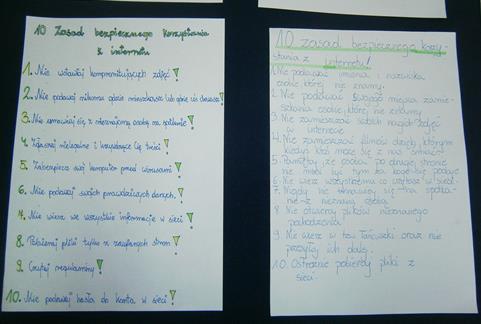 10 Zasad bezpiecznego korzystania
z internetu
1. Nie wstawiaj kompromitujących zdjęć!
2. Nie podawaj nikomu gdzie mieszkasz lub gdzie się uczysz!
3. Nie umawiaj się z nieznajomą osobą na spotkanie!
4. Zgłaszaj nielegalne i krzywdzące Cię treści!
5. Zabezpiecz swój komputer przed wirusami!
6. Nie podawaj swoich prawdziwych danych!
7. Nie wierz we wszystkie informacje w sieci!
8. Pobieraj pliki tylko z zaufanych stron!
9. Czytaj regulaminy!
10. Nie podawaj hasła do konta w sieci!
10 zasad bezpiecznego korzy-
stania z internetu!
1. Nie podawać imienia i nazwiska
osobie, której nie znamy.
2. Nie podawać swojego miejsca zamie-
szkania osobie, której nie znamy
3. Nie zamieszczać swoich nagich zdjęć
w internecie
4. Nie zamieszczać filmów dzięki, którym
kiedyś ktoś może się z nas śmiać
5. Pamiętaj, że osoba po drugiej stronie
nie musi być tym za kogo się podaje
6. Nie wierz wszystkiemu co wyczytasz w sieci
7. Nigdy nie umawiaj się na spotka-
nie z nieznaną osobą
8. Nie otwieraj plików nieznanego
pochodzenia
9. Nie wierz w tzw. łańcuszki oraz nie
przesyłaj ich dalej.
10. Ostrożnie pobieraj pliki z
sieci.